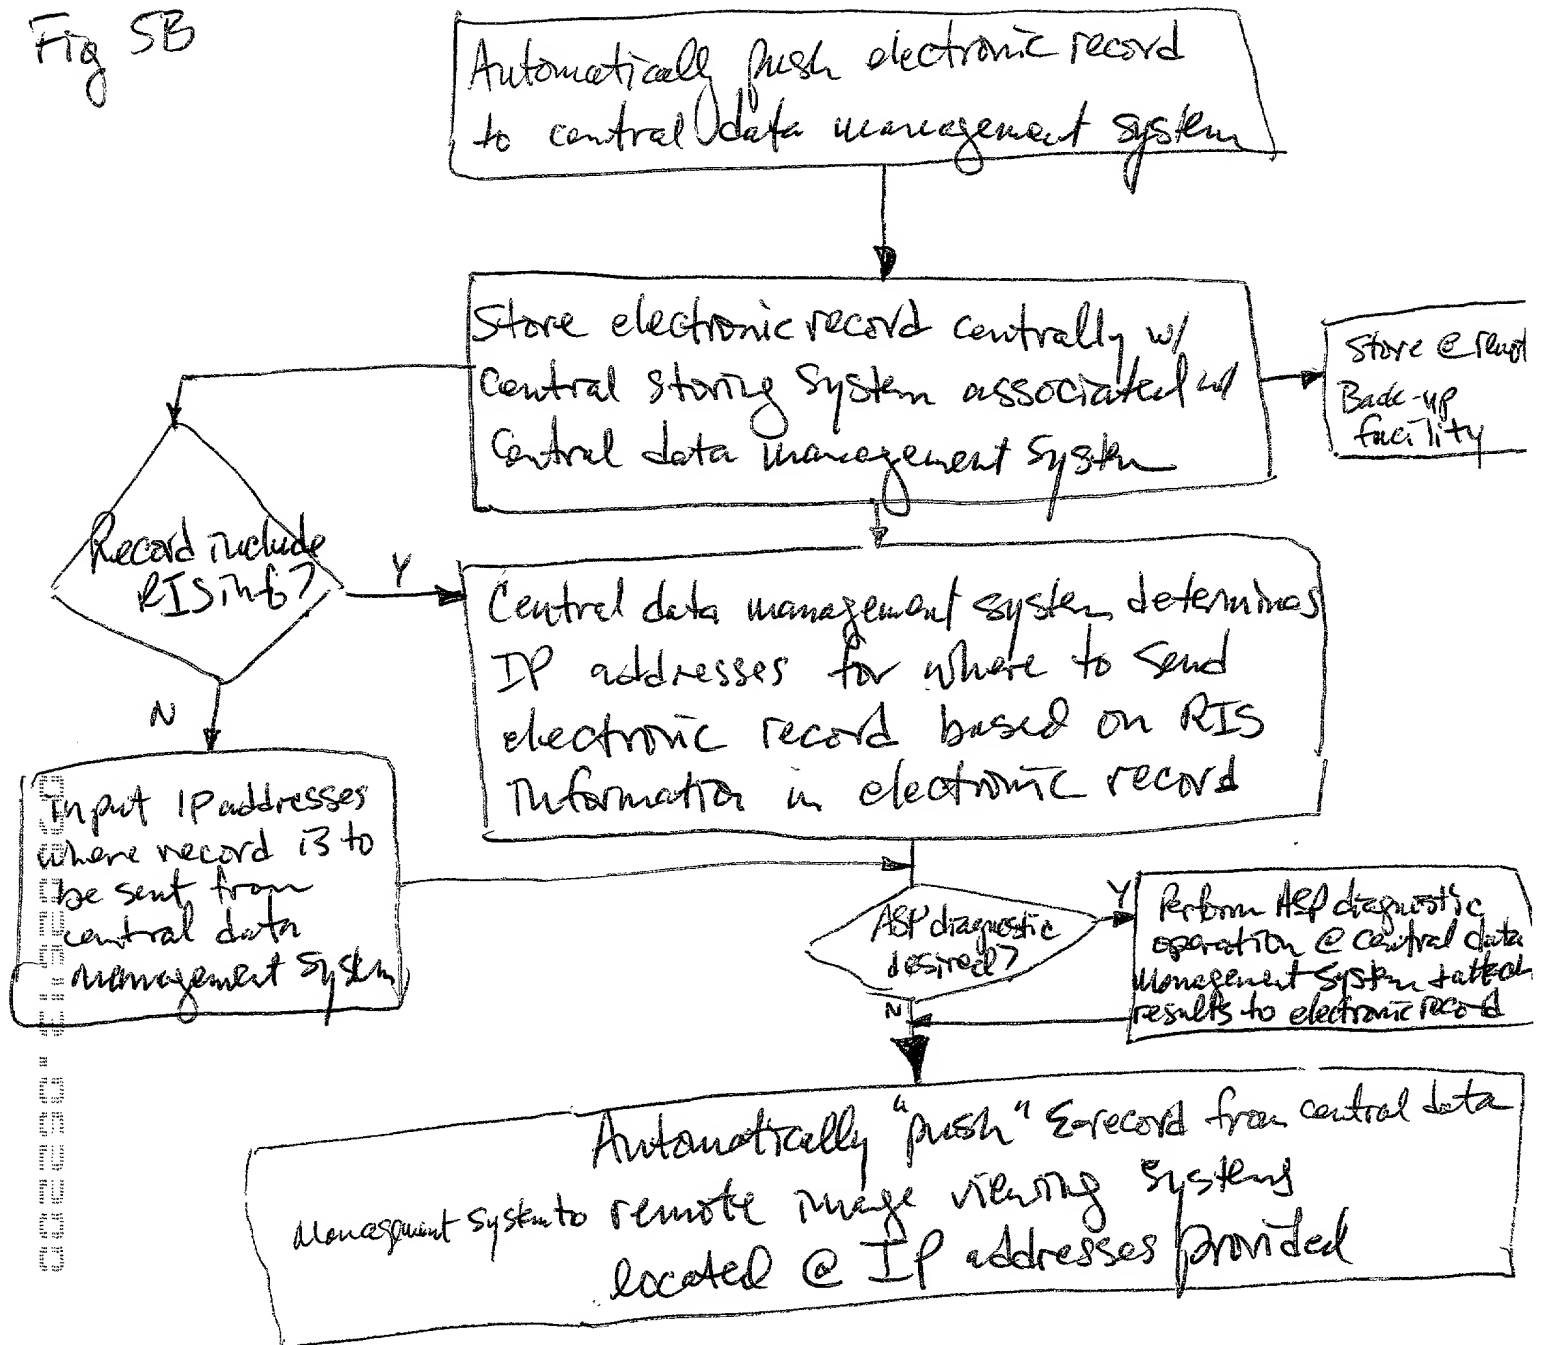 Fig 5B
Automatically push electronic record
to central data management system
Store electronic record centrally w/
Central storing system associated w/
Central data management system
Store @
Back-up
facility
Record include
RIS info?
Y
N
Central data management system determines
IP addresses for where to send
electronic record based on RIS
information in electronic record
Input IP addresses
where record is to
be sent from
central data
management system
ASP diagnostic
desired?
Y
N
Perform ASP diagnostic
operation @ central data
Management System + attach
results to electronic record
Automatically "push" E-record from central data
Management System to remote image viewing systems
located @ IP addresses provided